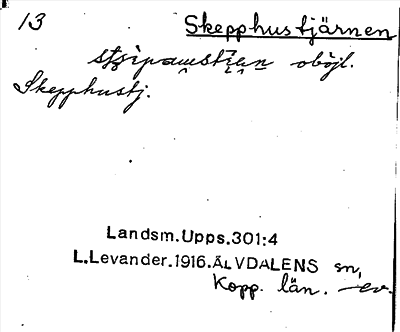 13 Skepphustjärnen
oböjl.
Skepphustj.
Landsm.Upps.301:4
L.Levander.1916.ÄLVDALENS sn,
Kopp. län.